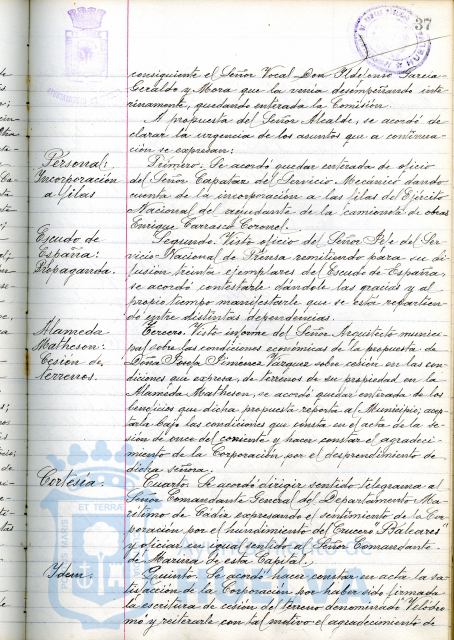 37
consiguiente el Señor Vocal Don Ildefonso García
Geraldo y Mora que la venía desempeñando inte
rinamente, quedando enterada la Comisión.
A propuesta del Señor Alcalde, se acordó de
clarar la urgencia de los asuntos que a continua
ción se expresan:
Personal:
Incorporación
a filas
Primero. Se acordó quedar enterada de oficio
del Señor Capataz del Servicio Mecánico dando
cuenta de la incorporación a las filas del Ejército
Nacional del ayudante de la camioneta de obras
Enrique Carrasco Coronel.
Escudo de
España:
Propaganda.
Segundo. Visto oficio del Señor Jefe del Ser
vicio Nacional de Prensa remitiendo para su di
fusión treinta ejemplares del Escudo de España,
se acordó contestarle dándole las gracias y al
propio tiempo manifestarle que se está repartien
do entre distintas dependencias.
Alameda
Matheson:
Cesión de
terrenos.
Tercero. Visto informe del Señor Arquitecto munici
pal sobre las condiciones económicas de la propuesta de
Doña Josefa Jiménez Vázquez sobre cesión en las con
diciones que expresa, de terrenos de su propiedad en la
Alameda Matheson, se acordó quedar enterada de los
beneficios que dicha propuesta reporta al Municipio, acep
tarla bajo las condiciones que consta en el acta de la se
sión de once del corriente y hacer constar el agradeci
miento de la Corporación, por el desprendimiento de
dicha señora.
Cortesía:
Cuarto. Se acordó dirigir sentido telegrama al
Señor Comandante General del Departamento Ma
rítimo de Cádiz expresando el sentimiento de la Cor
poración por el hundimiento del Crucero "Baleares"
y oficiar en igual sentido al Señor Comandante
de Marina de esta Capital.
Idem.
Quinto. Se acordó hacer constar en acta la sa
tisfacción de la Corporación por haber sido firmada
la escritura de cesión del terreno denominado Velódro
mo y reiterarle con tal motivo el agradecimiento de
ET TERRA